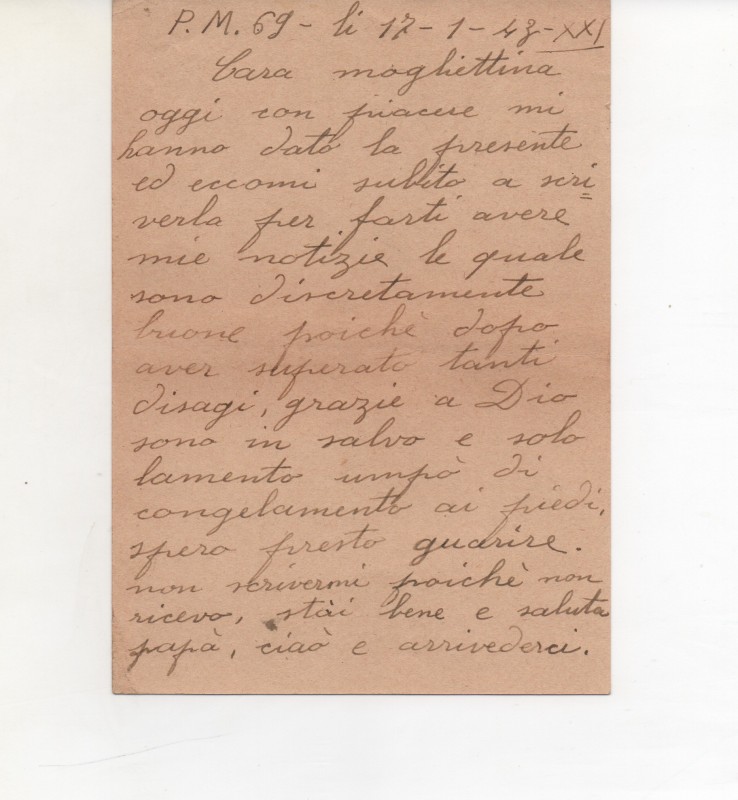 P.M. 69 - li 17-1-43-XXI
Cara moghettina
oggi con piacere mi
hanno dato la presente
ed eccomi subito a scri=
verla per farti avere
mie notizie le quale
sono discretamente
buone poichè dopo
aver superato tanti
disagi, grazie a Dio
sono in salvo e solo
lamento umpò di
congelamento ai piedi,
spero presto guarire.
non scrivermi poichè non
ricevo, stai bene e saluta
papà, ciaò e arrivederci.